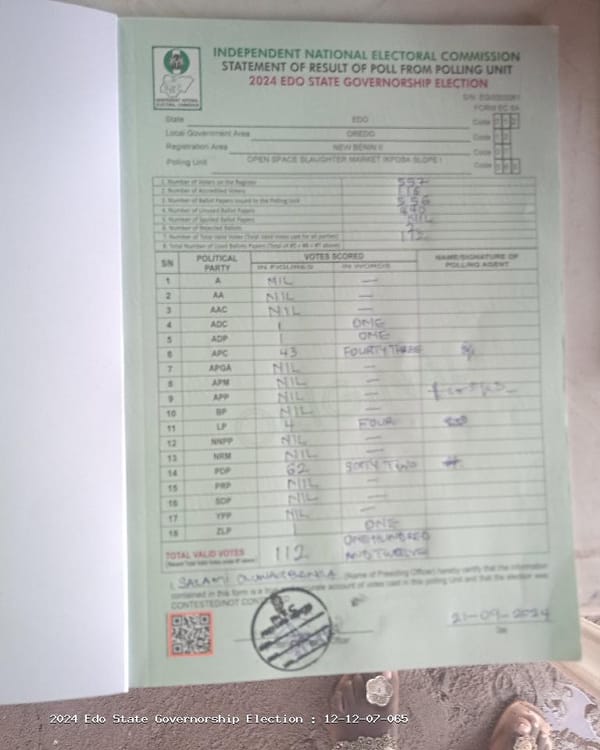 INDEPENDENT NATIONAL ELECTORAL COMMISSION
STATEMENT OF RESULT OF POLL FROM POLLING UNIT
2024 EDO STATE GOVERNORSHIP ELECTION
FORM EC 8A
State EDO Code
Local Government Area OREDO Code
Registration Area NEW BENIN II Code
Polling Unit OPEN SPACE SLAUGHTER MARKET IKPOBA SLOPE I Code
1. Number of Voters on the Register 557
2. Number of Accredited Voters 116
3. Number of Ballot Papers issued to the Polling Unit
4. Number of Unused Ballot Papers
5. Number of Spoiled Ballot Papers NIL
6. Number of Rejected Ballots
7. Number of Total Valid Votes (Total Valid Votes cast for all parties) 112
8. Total Number of Used Ballot Papers (Total of #5 + #6 + #7 above)
SN POLITICAL PARTY VOTES SCORED NAME/SIGNATURE OF POLLING AGENT
IN FIGURES IN WORDS
1 A NIL —
2 AA NIL —
3 AAC NIL —
4 ADC 1 ONE
5 ADP 1 ONE
6 APC 43 FOURTY THREE
7 APGA NIL —
8 APM NIL —
9 APP NIL —
10 BP NIL —
11 LP 4 FOUR
12 NNPP NIL —
13 NRM NIL —
14 PDP 62 SIXTY TWO
15 PRP NIL —
16 SDP NIL —
17 YPP NIL —
18 ZLP 1 ONE
TOTAL VALID VOTES 112 ONE HUNDRED AND TWELVE
I, SALAMI (Name of Presiding Officer) hereby certify that the information
contained in this form is a true and accurate account of votes cast in this polling Unit and that the election was
CONTESTED/NOT CONTESTED
21-09-2024
2024 Edo State Governorship Election : 12-12-07-065